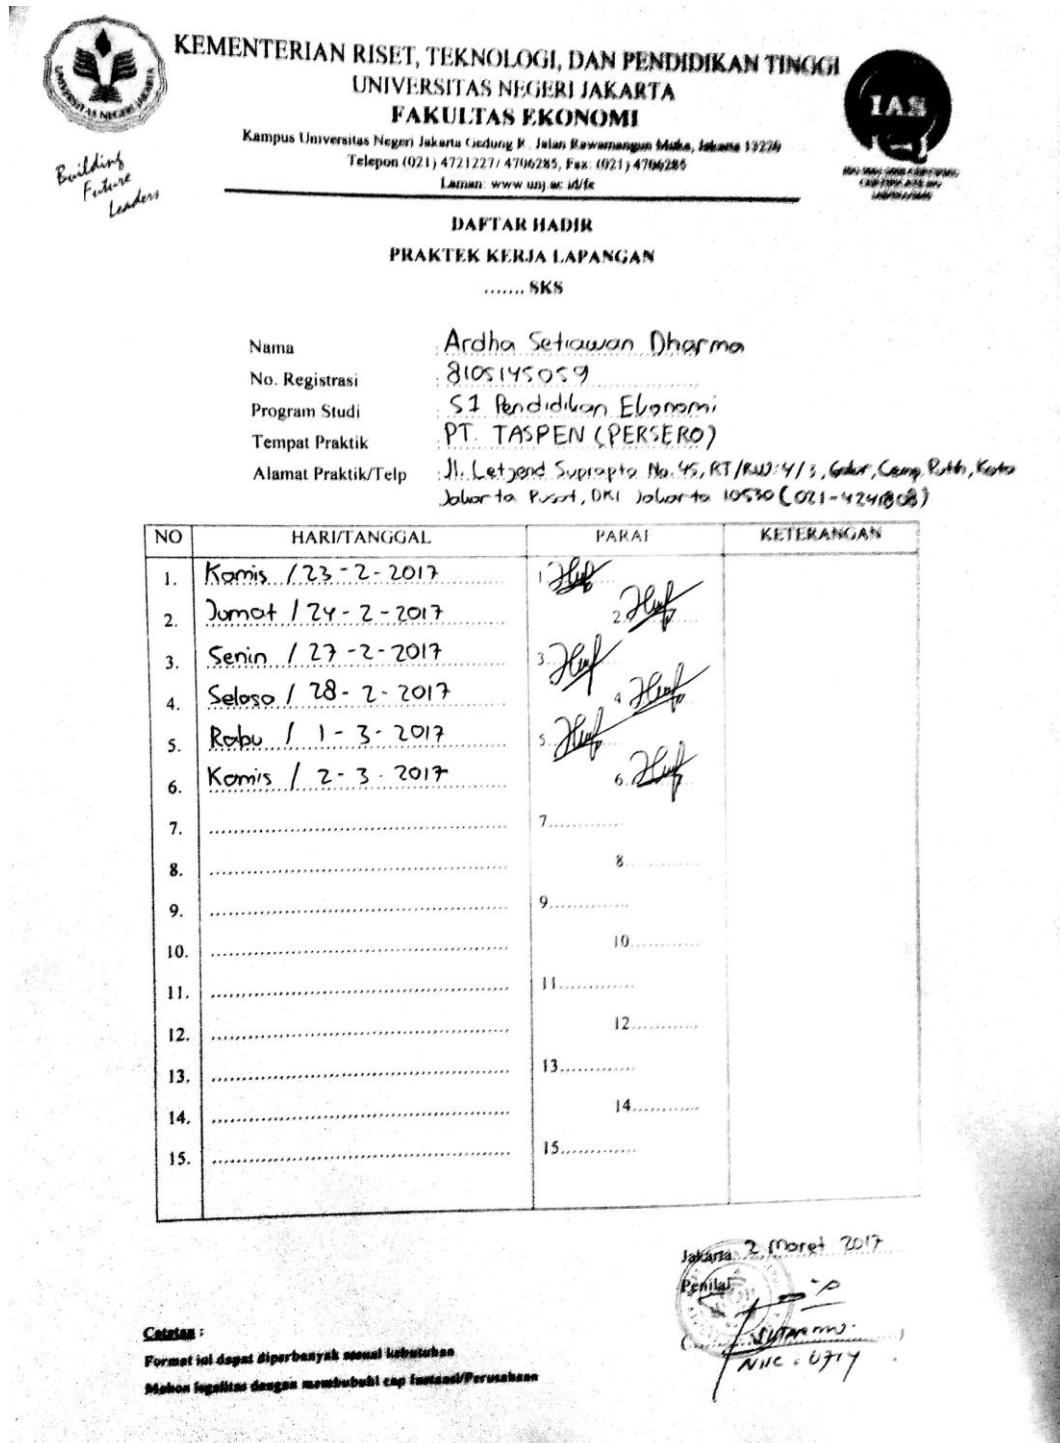 KEMENTERIAN RISET, TEKNOLOGI, DAN PENDIDIKAN TINGGI
UNIVERSITAS NEGERI JAKARTA
FAKULTAS EKONOMI
Kampus Universitas Negeri Jakarta Gedung R, Jalan Rawamangun Muka, Jakarta 13220
Telepon (021) 4721227/ 4706285, Fax: (021) 4706285
Laman: www.unj.ac.id/fe
UNIVERSITAS NEGERI JAKARTA
Building
Future
Leaders
IAS
DAFTAR HADIR
PRAKTEK KERJA LAPANGAN
....... SKS
Nama : Ardha Setiawan Dharma
No. Registrasi : 8105145059
Program Studi : S1 Pendidikan Ekonomi
Tempat Praktik : PT. TASPEN (PERSERO)
Alamat Praktik/Telp : Jl. Letjend Suprapto No. 45, RT/RW: 4/3, Cemp. Putih, Kota
Jakarta Pusat, DKI Jakarta 10530 (021-4241808)
NO HARI/TANGGAL PARAF KETERANGAN
1. Kamis / 23-2-2017 1.
2. Jumat / 24-2-2017 2.
3. Senin / 27-2-2017 3.
4. Selasa / 28-2-2017 4.
5. Rabu / 1-3-2017 5.
6. Kamis / 2-3-2017 6.
7. .............. 7..............
8. .............. 8..............
9. .............. 9..............
10. .............. 10..............
11. .............. 11..............
12. .............. 12..............
13. .............. 13..............
14. .............. 14..............
15. .............. 15..............
Jakarta, 2 Maret 2017
Penilai,
Catatan :
Format ini dapat diperbanyak sesuai kebutuhan
Mohon legalitas dengan membubuhi cap Instansi/Perusahaan